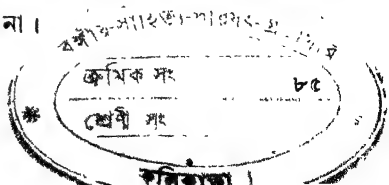 না ।
বঙ্গীয়-সাহিত্য-পরিষৎ-গ্র
ক্রমিক সং ৮৫
শ্রেণী সং
কলিকাতা ।